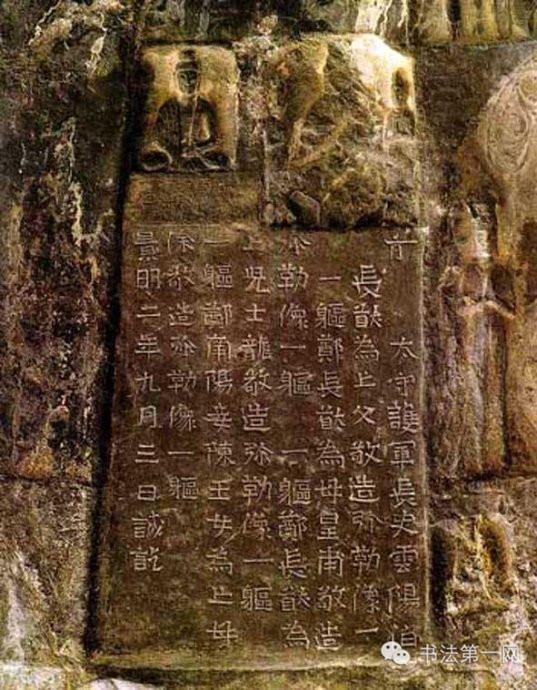 太守護軍長史雲陽伯
長猷為亡父敬造弥勒像一
一軀鄭長猷為母皇甫敬造
弥勒像一軀 一軀鄭長猷為
亡兒士龍敬造弥勒像一軀
一軀鄭南陽妾陳玉女為亡母
徐敬造弥勒像一軀
景明二年九月三日誡訖
书法第一网